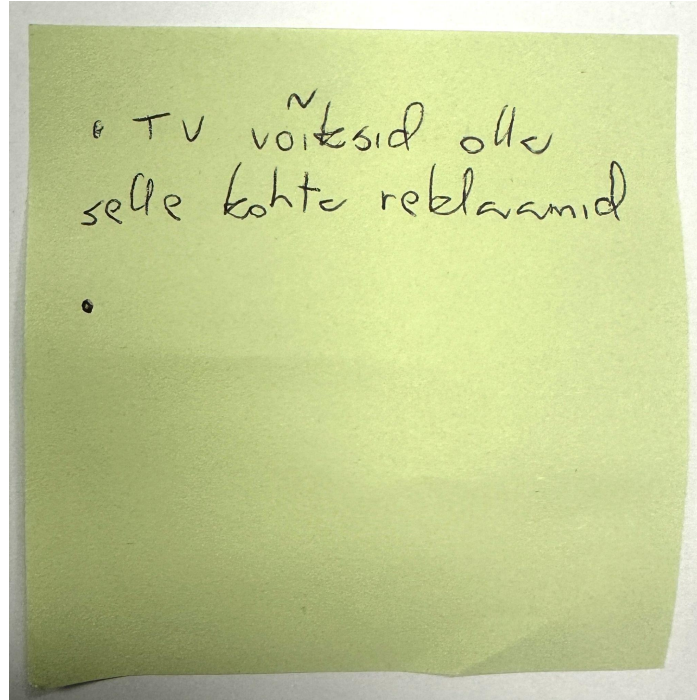 • TV võiksid olla
selle kohta reklaamid
•